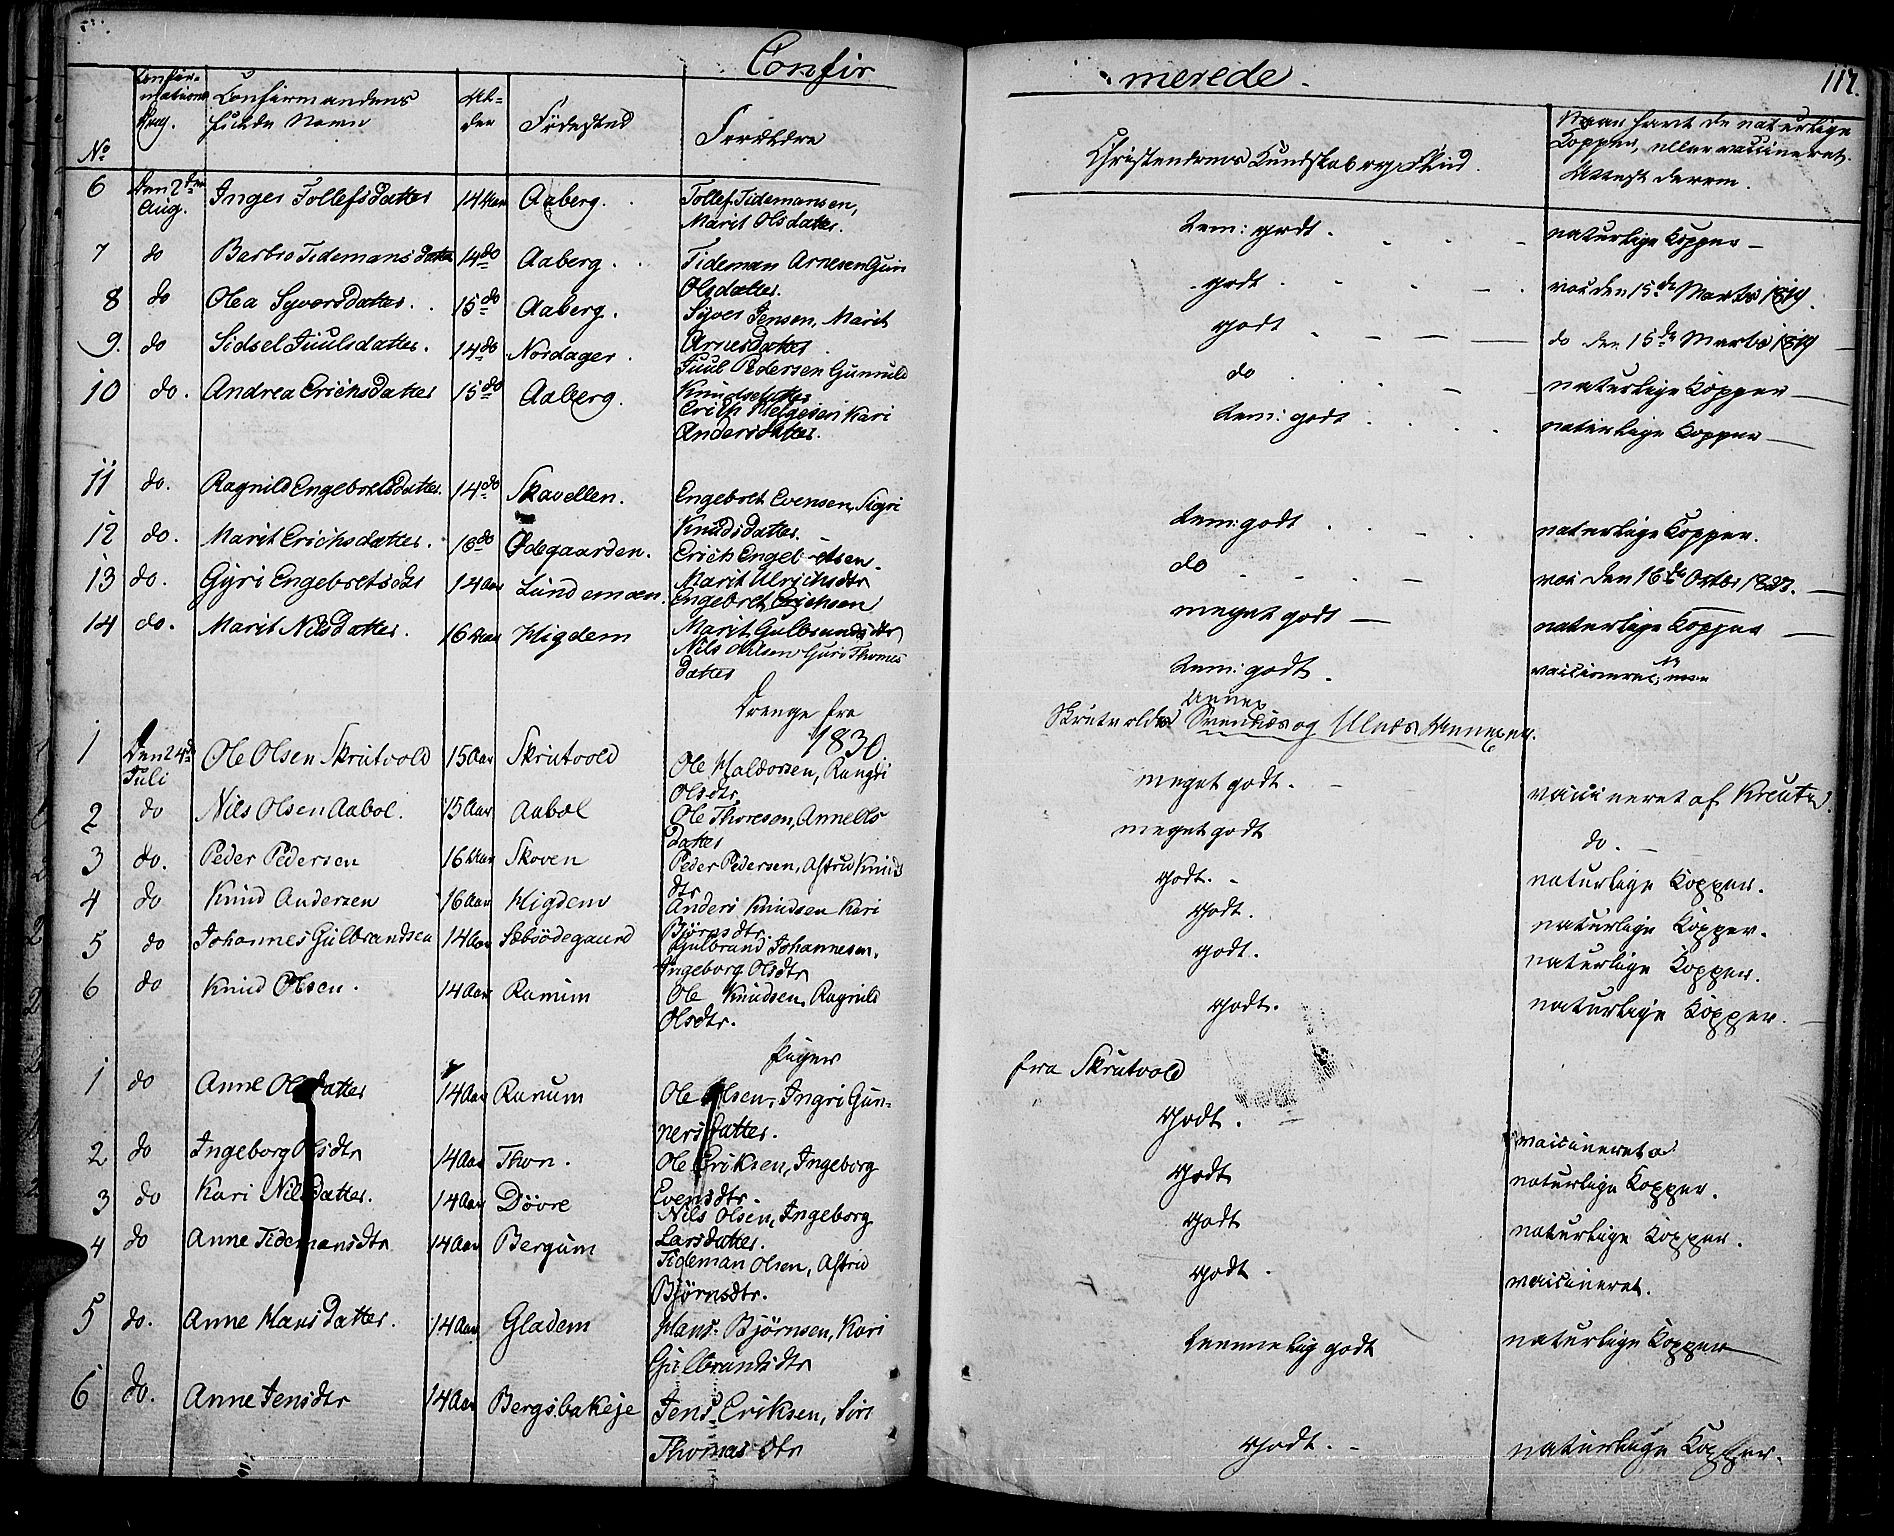 Confirmerede. 117.
No Confirmations Dag. Confirmandens fulde Navn Alder Födested Forældre Christendoms Kundskab og Flid. Naar havt de naturlige Kopper, eller vaccineret. Attest derom.
6 Den 2den Aug. Inger Tollefsdatter 14 Aar Aaberg. Tollef Tidemansen, Marit Olsdatter. tem: godt. naturlige Kopper
7 do Barbro Tidemansdatter 14 do Aaberg. Tideman Arnesen Guri Olsdatter. godt vac den 15de Marts 1819.
8 do Olea Syversdatter. 15 do Aaberg. Syver Jensen, Marit Arnesdatter godt do den 15de Marts 1819
9. do Sidsel Juulsdatter. 14 do Nordager. Juul Pedersen Gunnild Knudsdatter do naturlige Kopper
10 do. Andrea Erichsdatter 15 do Aaberg. Erich Helgesen Kari Andersdatter. tem: godt naturlige Kopper
11 do. Ragnild Engebretsdatter. 14 do Skavellen. Engebret Evensen, Sigri Knudsdatter. tem: godt naturlige Kopper.
12 do. Marit Erichsdatter. 16 do Ödegaarden. Erich Engebretsen. Marit Ulrichsdtr do vac den 16de Octbr 1823.
13 do. Gyri Engebretsdtr 14 Aar Lundemoen. Engebret Erichsen Marit Gulbrandsdtr meget godt naturlige Kopper
14 do. Marit Nilsdatter. 16 Aar Higdem Nils Nilsen Guri Thomesdatter tem: godt. vaccineret
Drenge fra Skrutvolds Annex Svennæs og Ulnæs Annexer.
1830
1 Den 24de Juli Ole Olsen Skrutvold 15 Aar Skrutvold Ole Haldorsen, Rangdi Olsdtr meget godt. vaccineret af
2 do Nils Olsen Aabol. 15 Aar Aaböl Ole Thoresen, Anne Olsdatter meget godt do.
3 do. Peder Pedersen 16 Aar Skoven Peder Pedersen, Astrid Knudsdtr godt. naturlige Kopper.
4 do Knud Andersen 16 Aar Higdem Anders Knudsen Kari Björnsdtr. godt. naturlige Kopper.
5 do Johannes Gulbrandsen 14 Aar Sæbsödegaard Gulbrand Johannesen, Ingeborg Olsdtr godt. naturlige Kopper.
6 do Knud Olsen. 14 Aar Ranum Ole Knudsen, Ragnild Olsdtr. godt. naturlige Kopper.
Piger fra Skrutvold
1 do Anne Olsdatter 14 Aar Ranum Ole Olsen, Ingri Gunnersdatter. godt. vaccineret
2 do Ingeborg Olsdtr 14 Aar Thon. Ole Eriksen, Ingeborg Evensdtr. godt naturlige Kopper.
3 do Kari Nilsdatter. 14 Aar Dövre Nils Olsen, Ingeborg Larsdatter. godt naturlige Kopper.
4 do Anne Tidemansdtr 14 Aar Bergum Tideman Olsen, Astrid Björnsdtr. godt. vaccineret.
5 do. Anne Hansdatter. 14 Aar Gladem Hans Björnsen, Kari Gulbrandsdtr temmelig godt naturlige Kopper
6 do. Anne Jensdtr 14 Aar Bergsbakeje Jens Eriksen, Siri Thomasdtr godt. naturlige Kopper.